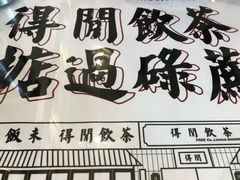 得閒飲茶
痁過碌蔗
飯未 得閒飲茶
得閒飲茶
得閒